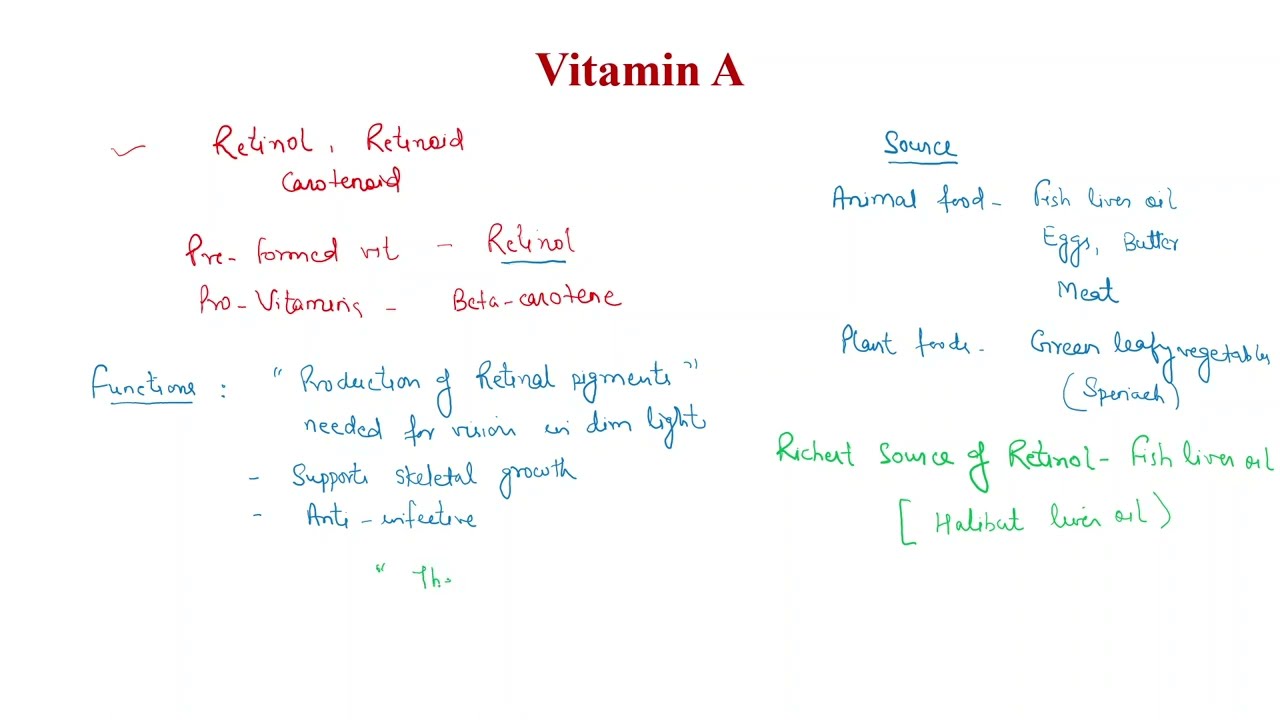 Vitamin A
Retinol, Retinoid
Carotenoid
Pre-formed vit - Retinol
Pro-Vitamins - Beta-carotene
Functions : " Production of Retinal pigments"
needed for vision in dim light
- Supports skeletal growth
- Anti-infective
" Th
Source
Animal food - Fish liver oil
Eggs, Butter
Meat
Plant foods - Green leafy vegetables
(Speniach)
Richest Source of Retinol - Fish liver oil
[Halibut liver oil)